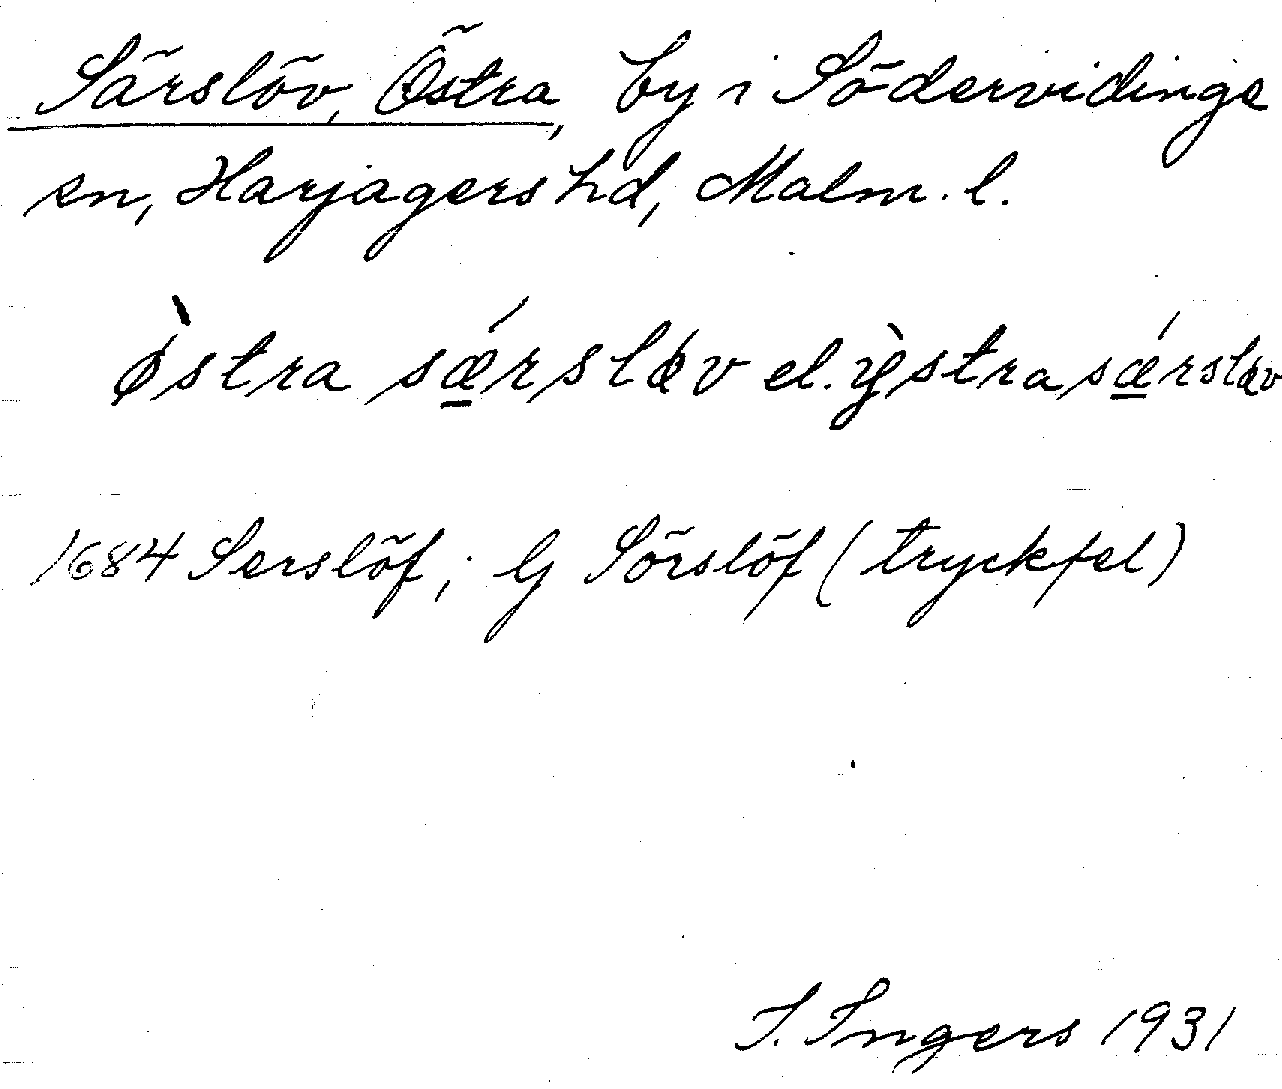 Särslöv, Östra, by i Södervidinge
sn, Harjagers hd, Malm. l.
ø̀stra sǽrsløv el. ỳstra sǽrsløv
1684 Serslöf; G Sörslöf (tryckfel)
I. Ingers 1931